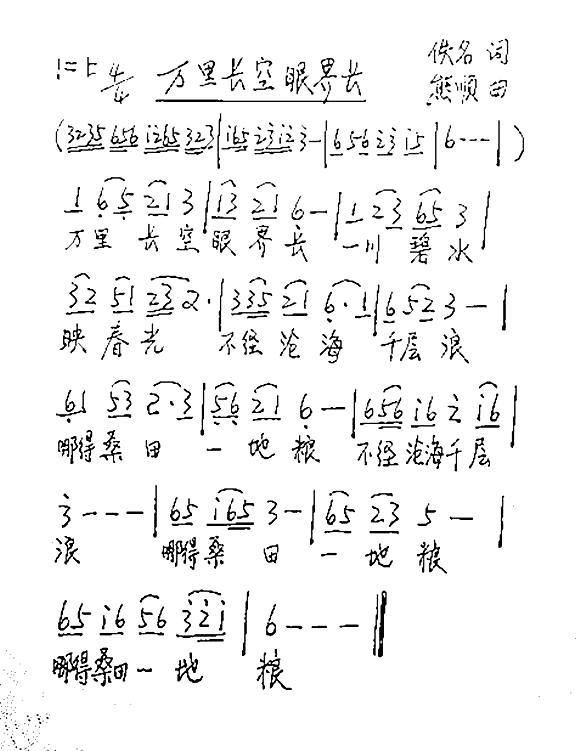 1=E 4/4 万里长空眼界长 佚名 词
熊顺 曲
(3235 656 i265 323|i65 23i2 3-|656 23 i5|6---|)
1 65 21 3|i3 21 6-|1 23 65 3|
万里 长空 眼界长 一川 碧水
32 51 23 2·|335 21 6·1|6 52 3-|
映春光 不经沧海 千层浪
61 53 2·3|56 21 6-|656 i6 2 i6|
哪得桑田 一地粮 不经沧海千层
3---|65 i65 3-|65 23 5-|
浪 哪得桑田 一地粮
65 i6 56 32i|6---‖
哪得桑田一地 粮